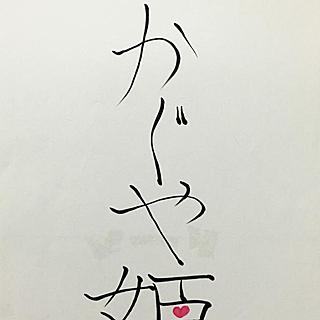 かぐや姫